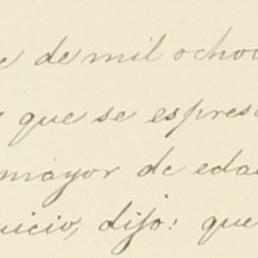 e de mil ochoc
que se espres
mayor de edad
uicio, dijo: que